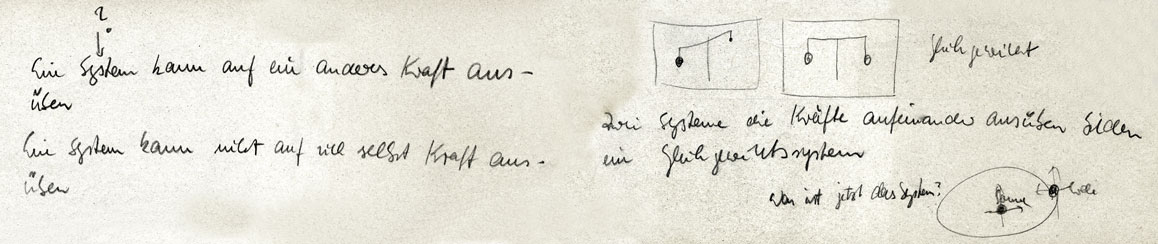 ?
Ein System kann auf ein anderes Kraft aus-
üben
Ein System kann nicht auf sich selbst Kraft aus-
üben
Gleichgewicht
Zwei Systeme die Kräfte aufeinander ausüben bilden
ein Gleichgewichtssystem
Was ist jetzt das System?
Sonne
Erde